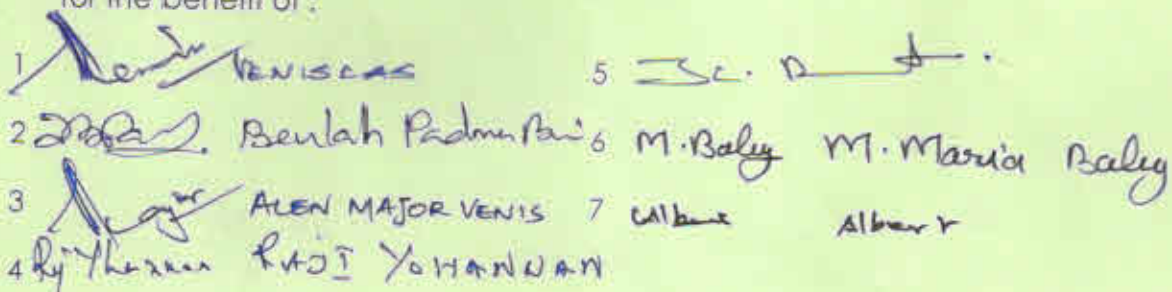 for the benefit of :
1 VENISCAS
2 Beulah Padma Bai
3 ALEN MAJOR VENIS
4 RAJI YOHANNAN
5
6 M. Baley M. Maria Baley
7 Albert Albert